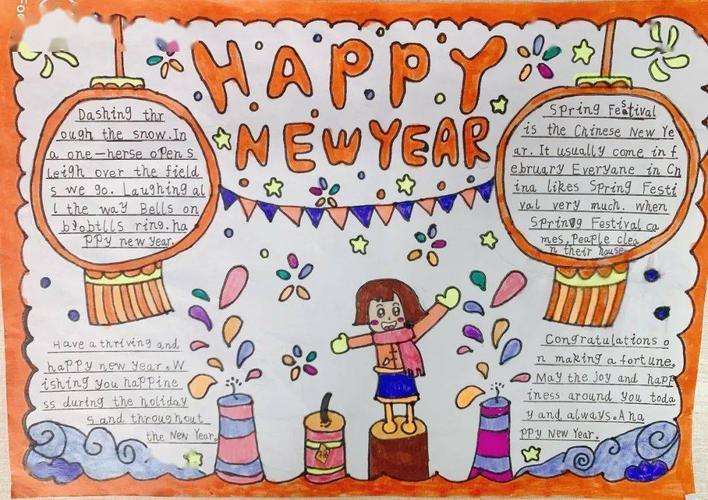 HAPPY
NEW YEAR
Dashing thr
ough the snow. In
a one-herse open s
leigh over the field
s we go. Laughing al
l the way Bells on
bobtills ring. ha
ppy new year.
Spring Festival
is the Chinese New Ye
ar. It usually come in f
ebruary Everyane in Ch
ina likes Spring Festi
val very much. when
Spring Festival ca
mes. Peaple clea
n their house
Have a thriving and
happy new year. W
ishing you happine
ss during the holiday
s and throughout
the New Year.
Congratulations o
n making a fortune,
May the joy and happ
iness around you toda
y and always. A ha
ppy New Year.